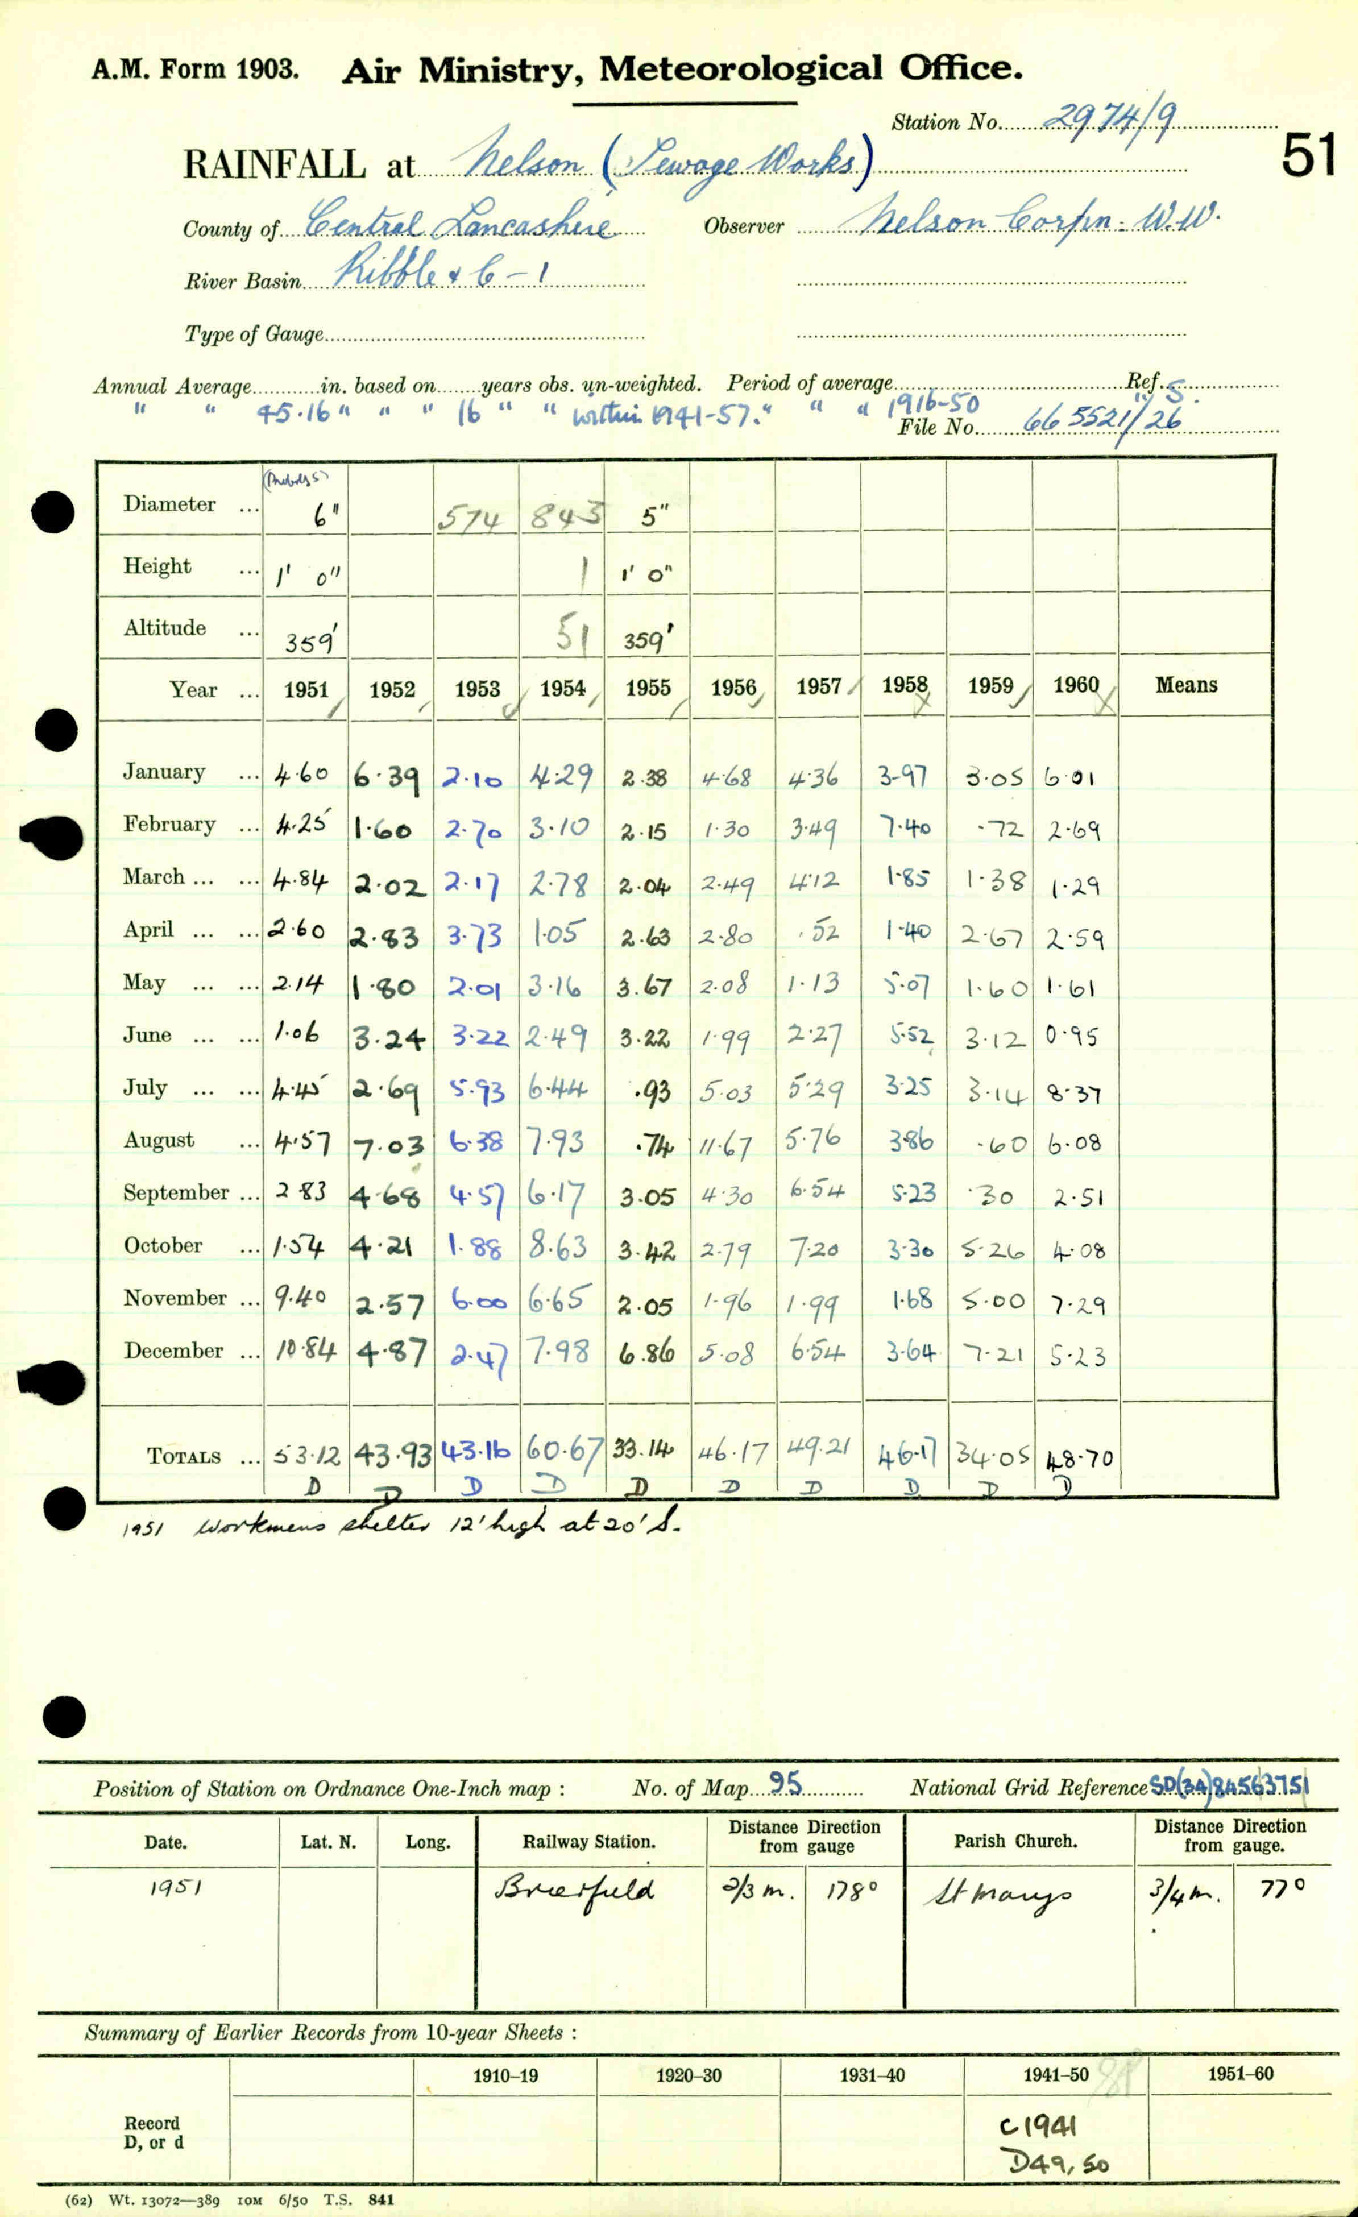 A.M. Form 1903. Air Ministry, Meteorological Office.
Station No. 2974/9
51
RAINFALL at Nelson (Sewage Works)
County of Central Lancashire Observer Nelson Corpn. W.W.
River Basin Ribble & C-1
Type of Gauge
Annual Average in. based on years obs. un-weighted. Period of average Ref. S.
" " 45.16 " " " 16 " " within 1941-57. " " " 1916-50 "
File No. 665521/26
Diameter ... 6" 574 843 5"
Height ... 1' 0" 1 1' 0"
Altitude ... 359' 51 359'
Year ... 1951 1952 1953 1954 1955 1956 1957 1958 1959 1960 Means
January ... 4.60 6.39 2.10 4.29 2.38 4.68 4.36 3.97 3.05 6.01
February ... 4.25 1.60 2.70 3.10 2.15 1.30 3.49 7.40 .72 2.69
March ... ... 4.84 2.02 2.17 2.78 2.04 2.49 4.12 1.85 1.38 1.29
April ... ... 2.60 2.83 3.73 1.05 2.63 2.80 .52 1.40 2.67 2.59
May ... ... 2.14 1.80 2.01 3.16 3.67 2.08 1.13 5.07 1.60 1.61
June ... ... 1.06 3.24 3.22 2.49 3.22 1.99 2.27 5.52 3.12 0.95
July ... ... 4.45 2.69 5.93 6.44 .93 5.03 5.29 3.25 3.14 8.37
August ... 4.57 7.03 6.38 7.93 .74 11.67 5.76 3.86 .60 6.08
September ... 2.83 4.68 4.57 6.17 3.05 4.30 6.54 5.23 .30 2.51
October ... 1.54 4.21 1.88 8.63 3.42 2.79 7.20 3.30 5.26 4.08
November ... 9.40 2.57 6.00 6.65 2.05 1.96 1.99 1.68 5.00 7.29
December ... 10.84 4.87 2.47 7.98 6.86 5.08 6.54 3.64 7.21 5.23
TOTALS ... 53.12 43.93 43.16 60.67 33.14 46.17 49.21 46.17 34.05 48.70
D D D D D D D D D D
1951 Workmens shelter 12' high at 20' S.
Position of Station on Ordnance One-Inch map : No. of Map 95 National Grid Reference SD(34)84563751
Date. Lat. N. Long. Railway Station. Distance Direction from gauge Parish Church. Distance Direction from gauge.
1951 Brierfield 2/3 m. 178° St Marys 3/4 m. 77°
Summary of Earlier Records from 10-year Sheets :
1910–19 1920–30 1931–40 1941–50 1951–60
Record
D, or d
C1941
D49, 50
(62) Wt. 13072—389 10M 6/50 T.S. 841